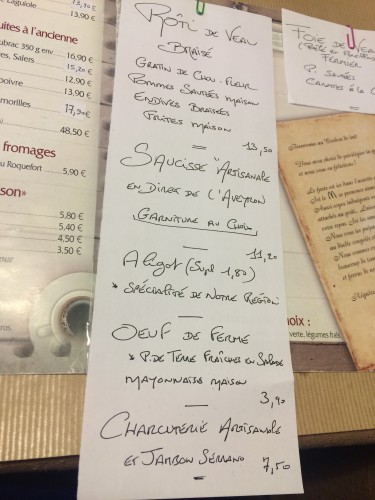 Laguiole
13,90 €
uites à l'ancienne
ubrac 350 g env. 16,90 €
es, Salers 15,20 €
12,90 €
poivre 13,90 €
morilles 17,90 €
48,50 €
fromages
u Roquefort 5,90 €
son*
5.80 €
5,40 €
4,50 €
3,50 €
RÔTI DE VEAU
BRAISÉ
GRATIN DE CHOU-FLEUR
POMMES SAUTÉES MAISON
ENDIVES BRAISÉES
FRITES MAISON
13,50
SAUCISSE ARTISANALE
EN DIRECT DE L'AVEYRON
GARNITURE AU CHOIX
11,20
Aligot (Supl 1,80)
* SPÉCIALITÉ DE NOTRE RÉGION
OEUF DE FERME
* P. DE TERRE FRAÎCHES EN SALADE
MAYONNAISE MAISON
3,90
CHARCUTERIE ARTISANALE
ET JAMBON SERRANO 7,50
FOIE DE VEAU
FERMIER
P. SAUTÉES
CAROTTES À LA C
hoix :
verte, légumes frais